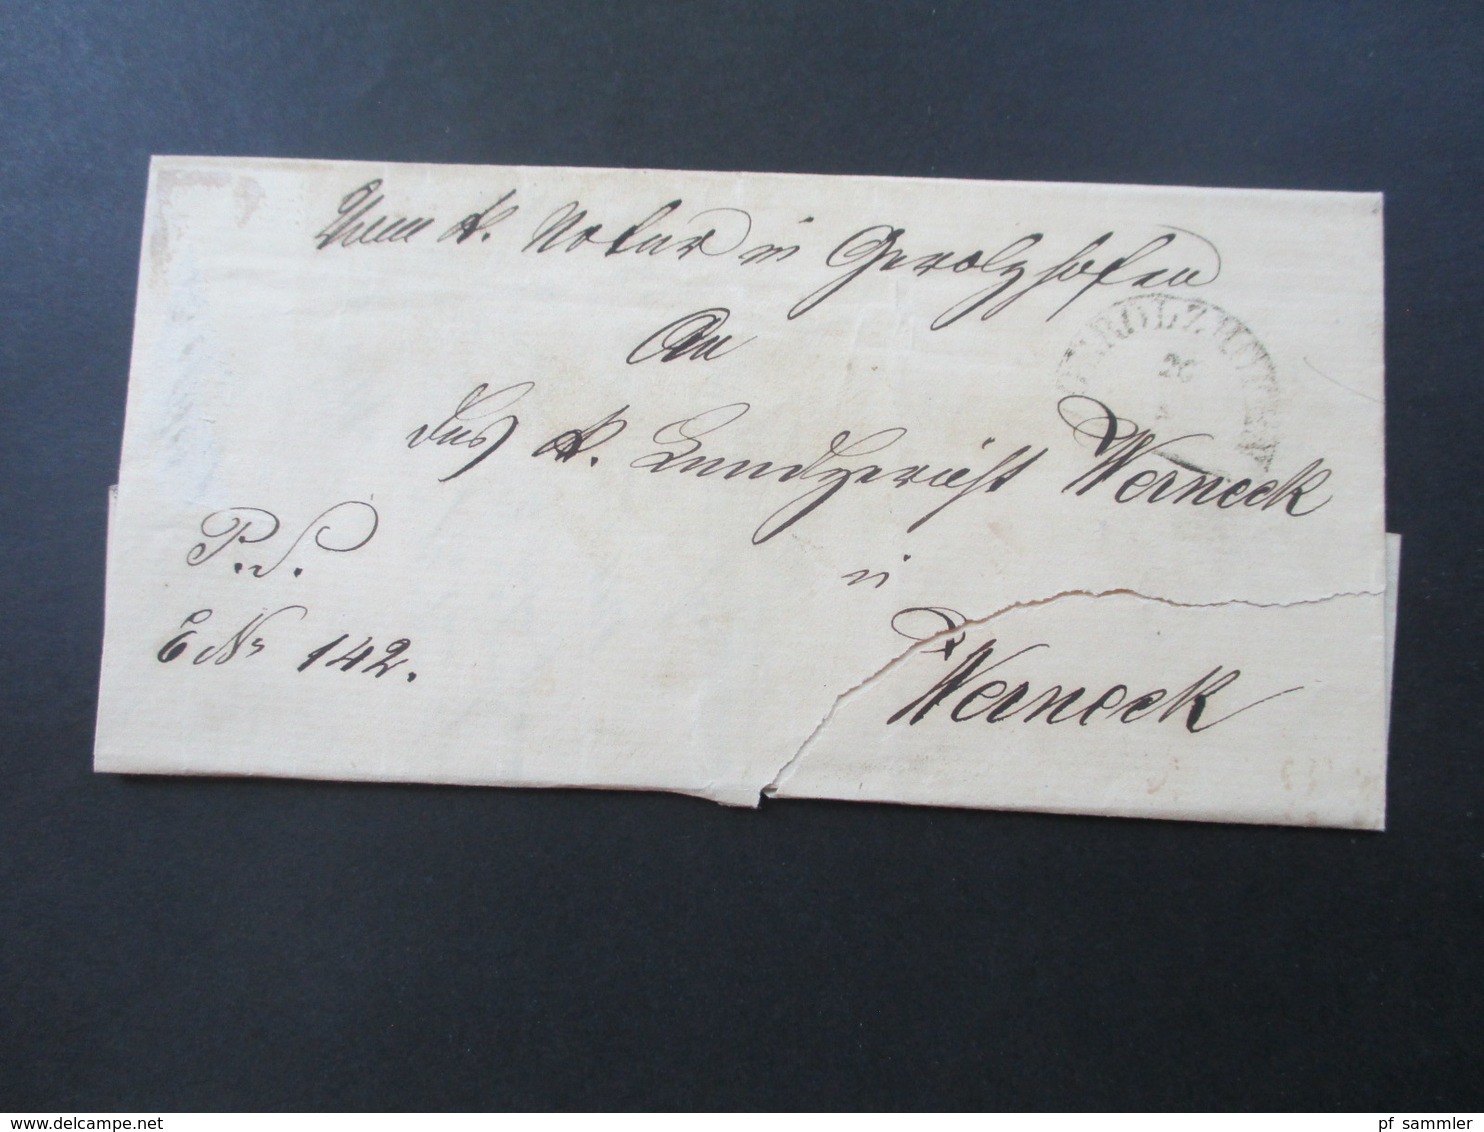 Vom k. Notar in Gerolzhofen
An
das k. Landgericht Werneck
in
Werneck
P. S.
E Nr 142.
GEROLZHOFEN
20
www.delcampe.net
pf_sammler